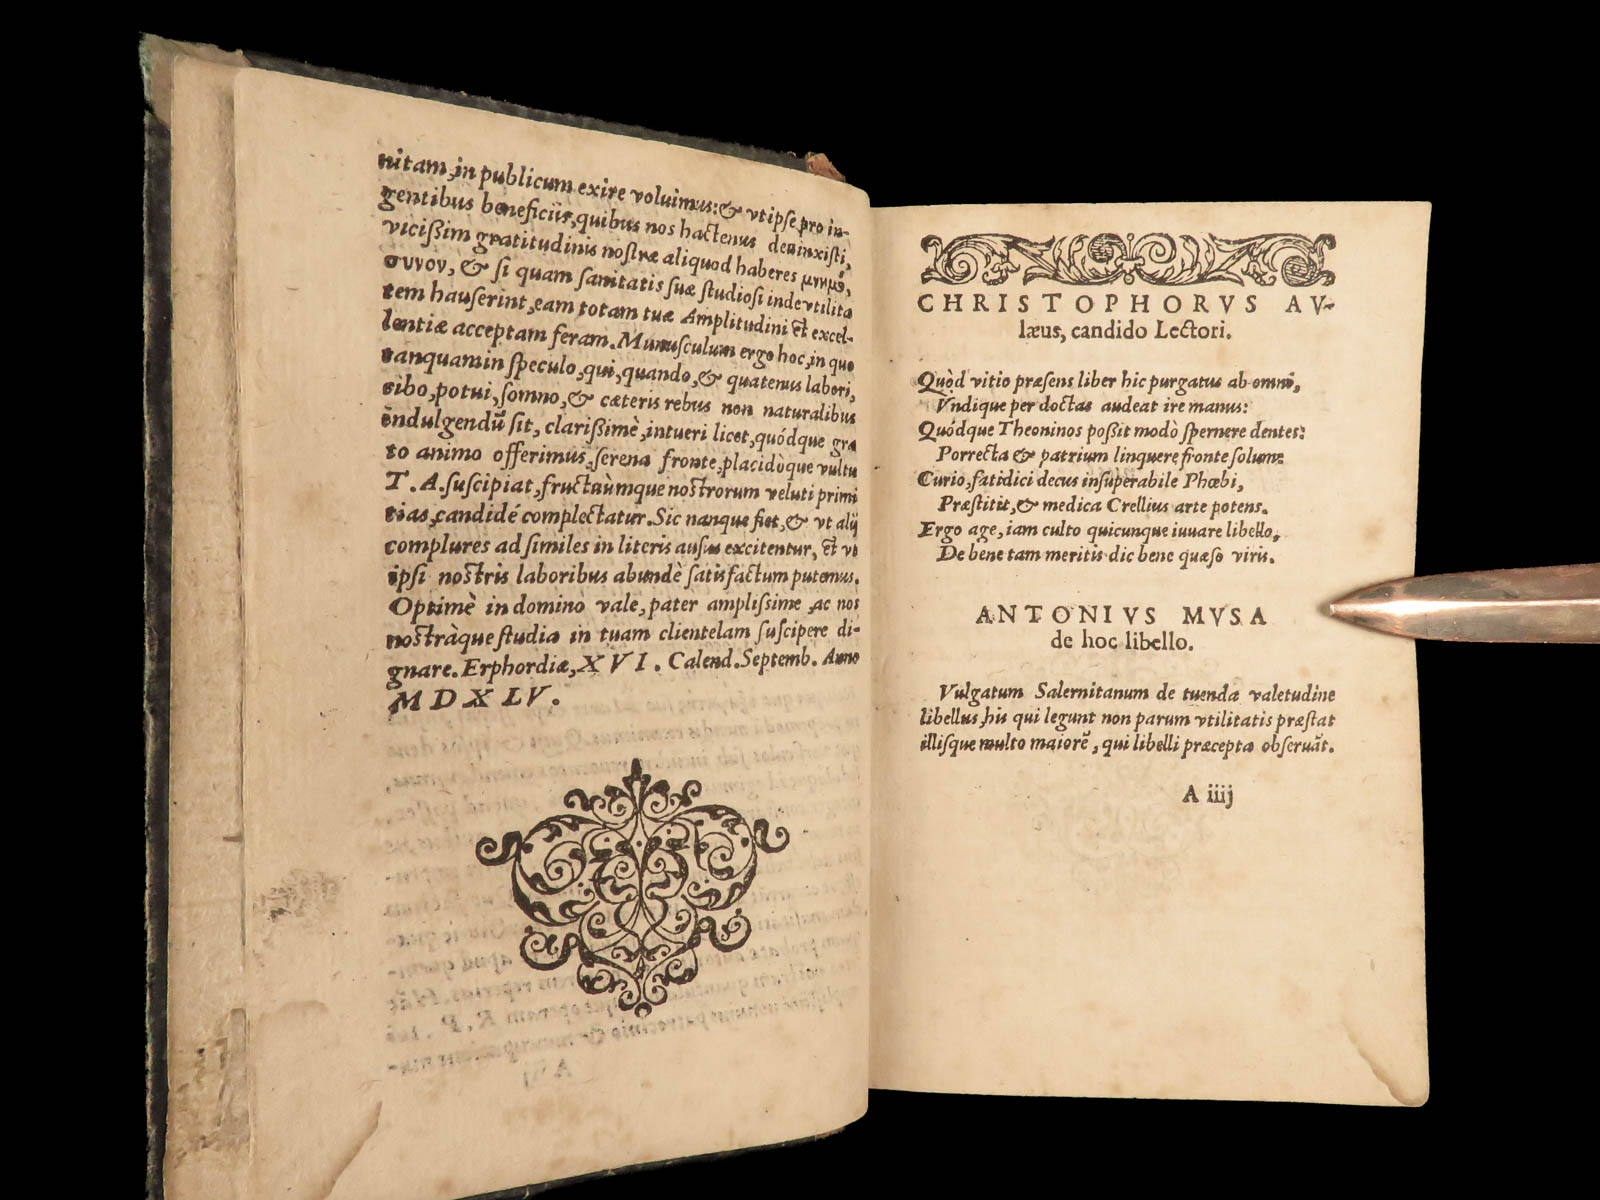 nitam, in publicum exire voluimus: & vt ipse pro in-
gentibus beneficijs, quibus nos hactenus deuinxisti,
vicißim gratitudinis nostræ aliquod haberes μνημό,
συνον, & si quam sanitatis suæ studiosi inde vtilita
tem hauserint, eam totam tuæ Amplitudini et excel-
lentiæ acceptam feram. Munusculum ergo hoc, in quo
tanquam in speculo, qui, quando, & quatenus labori,
cibo, potui, somno, & cæteris rebus non naturalibus
indulgendū sit, clarißimè, intueri licet, quódque gra
to animo offerimus, serena fronte, placidòque vultu
T. A. suscipiat, fructuùmque nostrorum veluti primi
tias, candidé complectatur. Sic nanque fiet, & vt alij
complures ad similes in literis ausus excitentur, et vt
ipsi nostris laboribus abundè satisfactum putemus.
Optimè in domino vale, pater amplissime, ac nos
nostràque studia in tuam clientelam suscipere di-
gnare. Erphordiæ, XVI. Calend. Septemb. Anno
MDXLV.
CHRISTOPHORVS AV-
læus, candido Lectori.
Quòd vitio præsens liber hic purgatus ab omni,
Vndique per doctas audeat ire manus:
Quódque Theoninos poßit modò spernere dentes:
Porrecta & patrium linquere fronte solum:
Curio, fatidici decus insuperabile Phœbi,
Præstitit, & medica Crellius arte potens.
Ergo age, iam culto quicunque iuuare libello,
De bene tam meritis dic bene quæso viris.
ANTONIVS MVSA
de hoc libello.
Vulgatum Salernitanum de tuenda valetudine
libellus, his qui legunt non parum vtilitatis præstat
illisque multo maiorē, qui libelli præcepta obseruāt.
A iiij